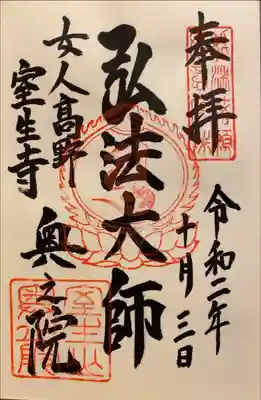 奉拝
令和二年
十月三日
弘法大師
奥之院
女人髙野
室生寺